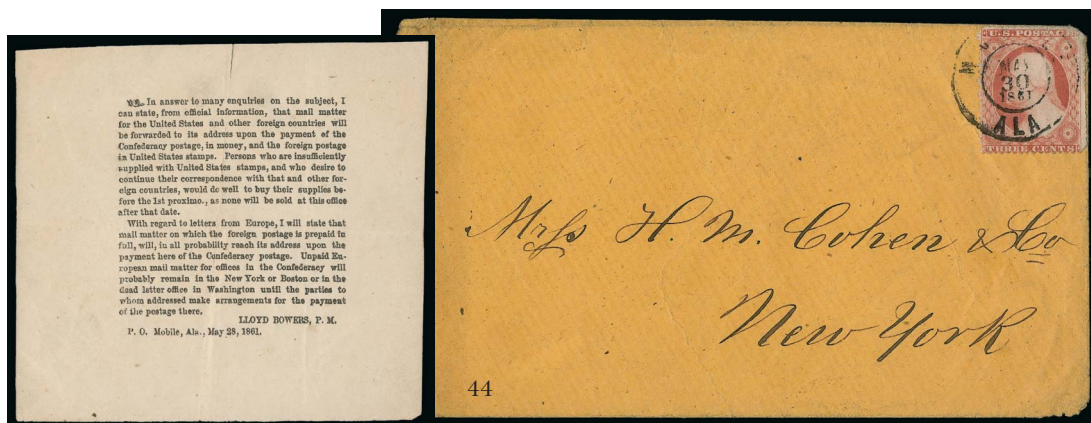 In answer to many enquiries on the subject, I
can state, from official information, that mail matter
for the United States and other foreign countries will
be forwarded to its address upon the payment of the
Confederacy postage, in money, and the foreign postage
in United States stamps. Persons who are insufficiently
supplied with United States stamps, and who desire to
continue their correspondence with that and other for-
eign countries, would do well to buy their supplies be-
fore the 1st proximo., as none will be sold at this office
after that date.
With regard to letters from Europe, I will state that
mail matter on which the foreign postage is prepaid in
full, will, in all probability reach its address upon the
payment here of the Confederacy postage. Unpaid Eu-
ropean mail matter for offices in the Confederacy will
probably remain in the New York or Boston or in the
dead letter office in Washington until the parties to
whom addressed make arrangements for the payment
of the postage there.
LLOYD BOWERS, P. M.
P. O. Mobile, Ala., May 28, 1861.
U.S. POSTAGE
MAY
30
1861
ALA.
THREE CENTS
Mess H. M. Cohen & Co
New York
44